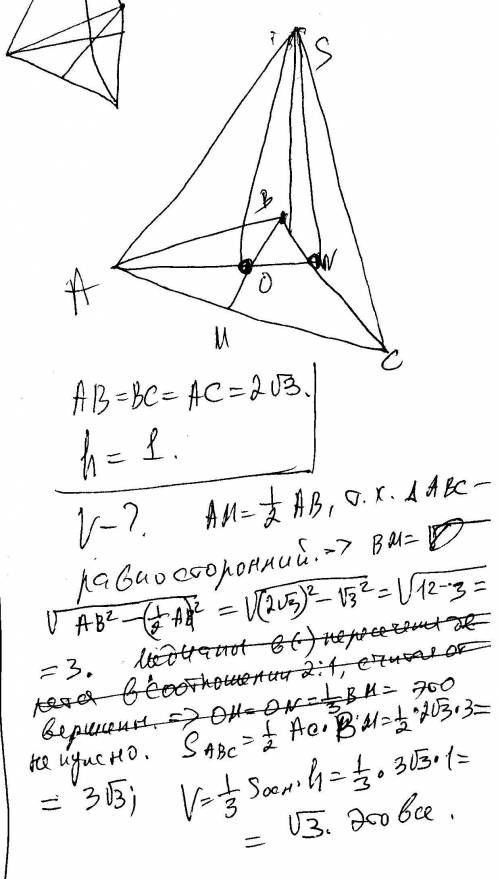 S
B
A
O
N
M
C
AB=BC=AC=2√3.
h=1.
V-?. AM=½ AB, т.к. ΔABC-
равносторонний.=> BM=
√AB²-(½AB)² = √(2√3)²-√3² = √12-3 =
=3. Медианы в (·) пересечения де
лятся в соотношении 2:1, считая от
вершины. => OM=ON=⅓BM= это
не нужно. S ABC=½ AC·BM=½·2√3·3=
= 3√3; V=⅓ Sосн·h=⅓·3√3·1=
= √3. Это все.